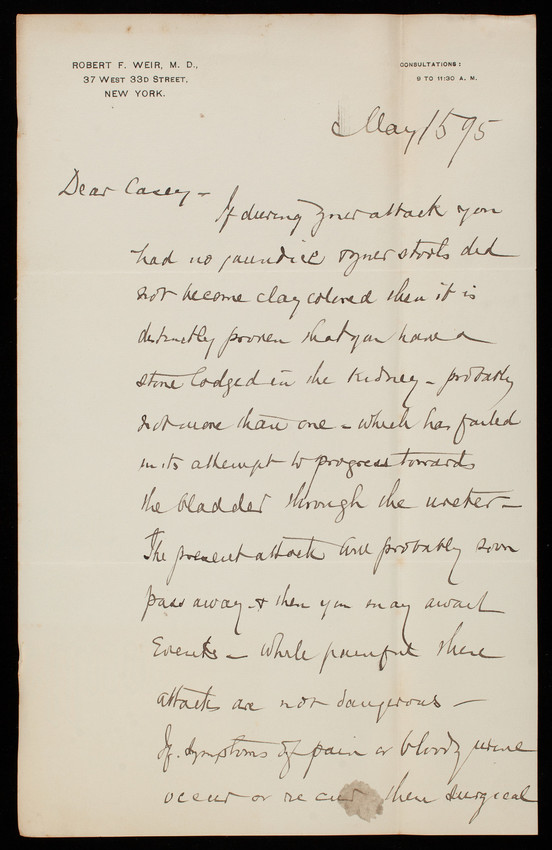 ROBERT F. WEIR, M. D.,
37 WEST 33D STREET,
NEW YORK.
CONSULTATIONS:
9 TO 11:30 A. M.
May 15 95
Dear Casey -
If during your attack you
had no jaundice or your stools did
not become clay colored then it is
distinctly proven that you have a
stone lodged in the kidney - probably
not more than one - which has failed
in its attempt to progress towards
the bladder through the ureter -
The present attack will probably soon
pass away - & then you may await
Events - While painful these
attacks are not dangerous -
If symptoms of pain or bloody urine
occur or re cur then surgical